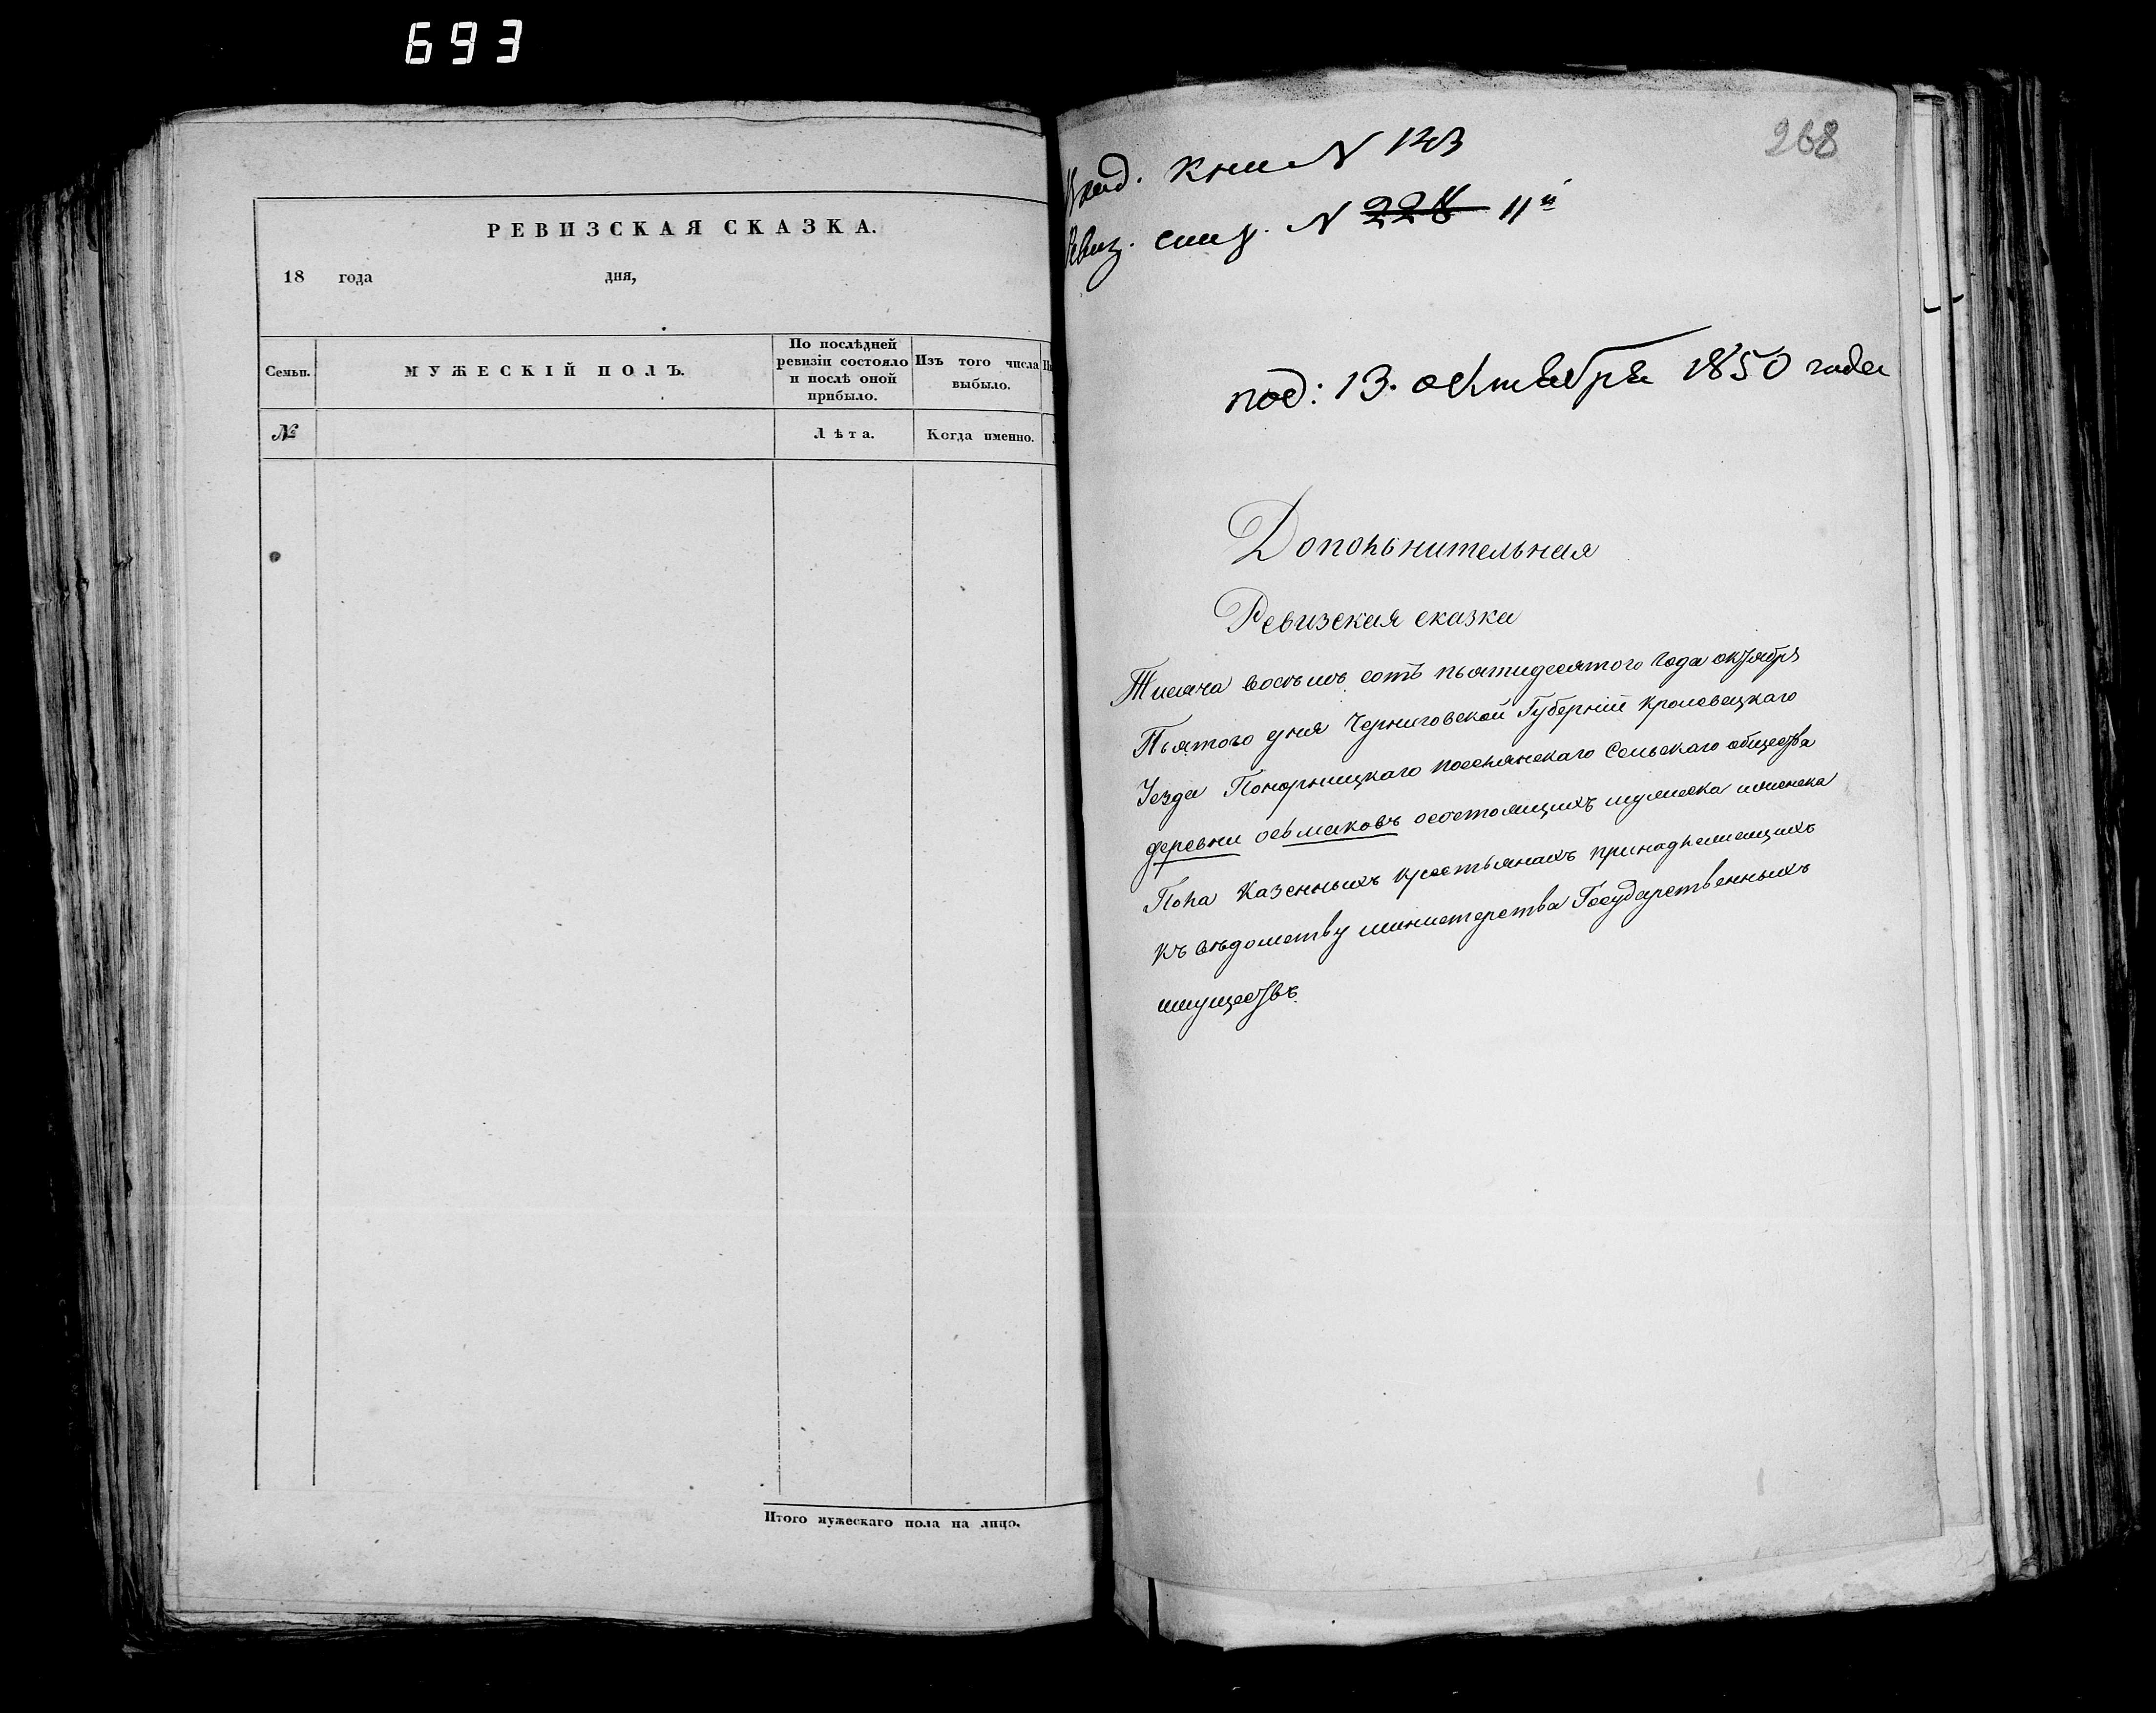 693
РЕВИЗСКАЯ СКАЗКА.
18 года дня,
Семьи.
МУЖЕСКІЙ ПОЛЪ.
По послѣдней
ревизіи состояло
и послѣ оной
прибыло.
Изъ того числа
выбыло.
№
Лѣта.
Когда именно.
Итого мужескаго пола на лицо.
268
Вход. Кни N 123
Ревиз. N 228 11й
под: 13. октября 1850 года
Дополнительная
Ревизская сказка
Тисяча восъмъ сотъ пьятидесятого Года октября
Пьятого дня Черниговской Губерніи Кролевецкаго
Уезда Понорницкаго поселянскаго Сельскаго общества
деревни осьмаковъ осостоящихъ мужеска иженска
Пола Казенныхъ крестьянахъ принадлежащихъ
къ вѣдомству министерства Государственныхъ
имуществъ.